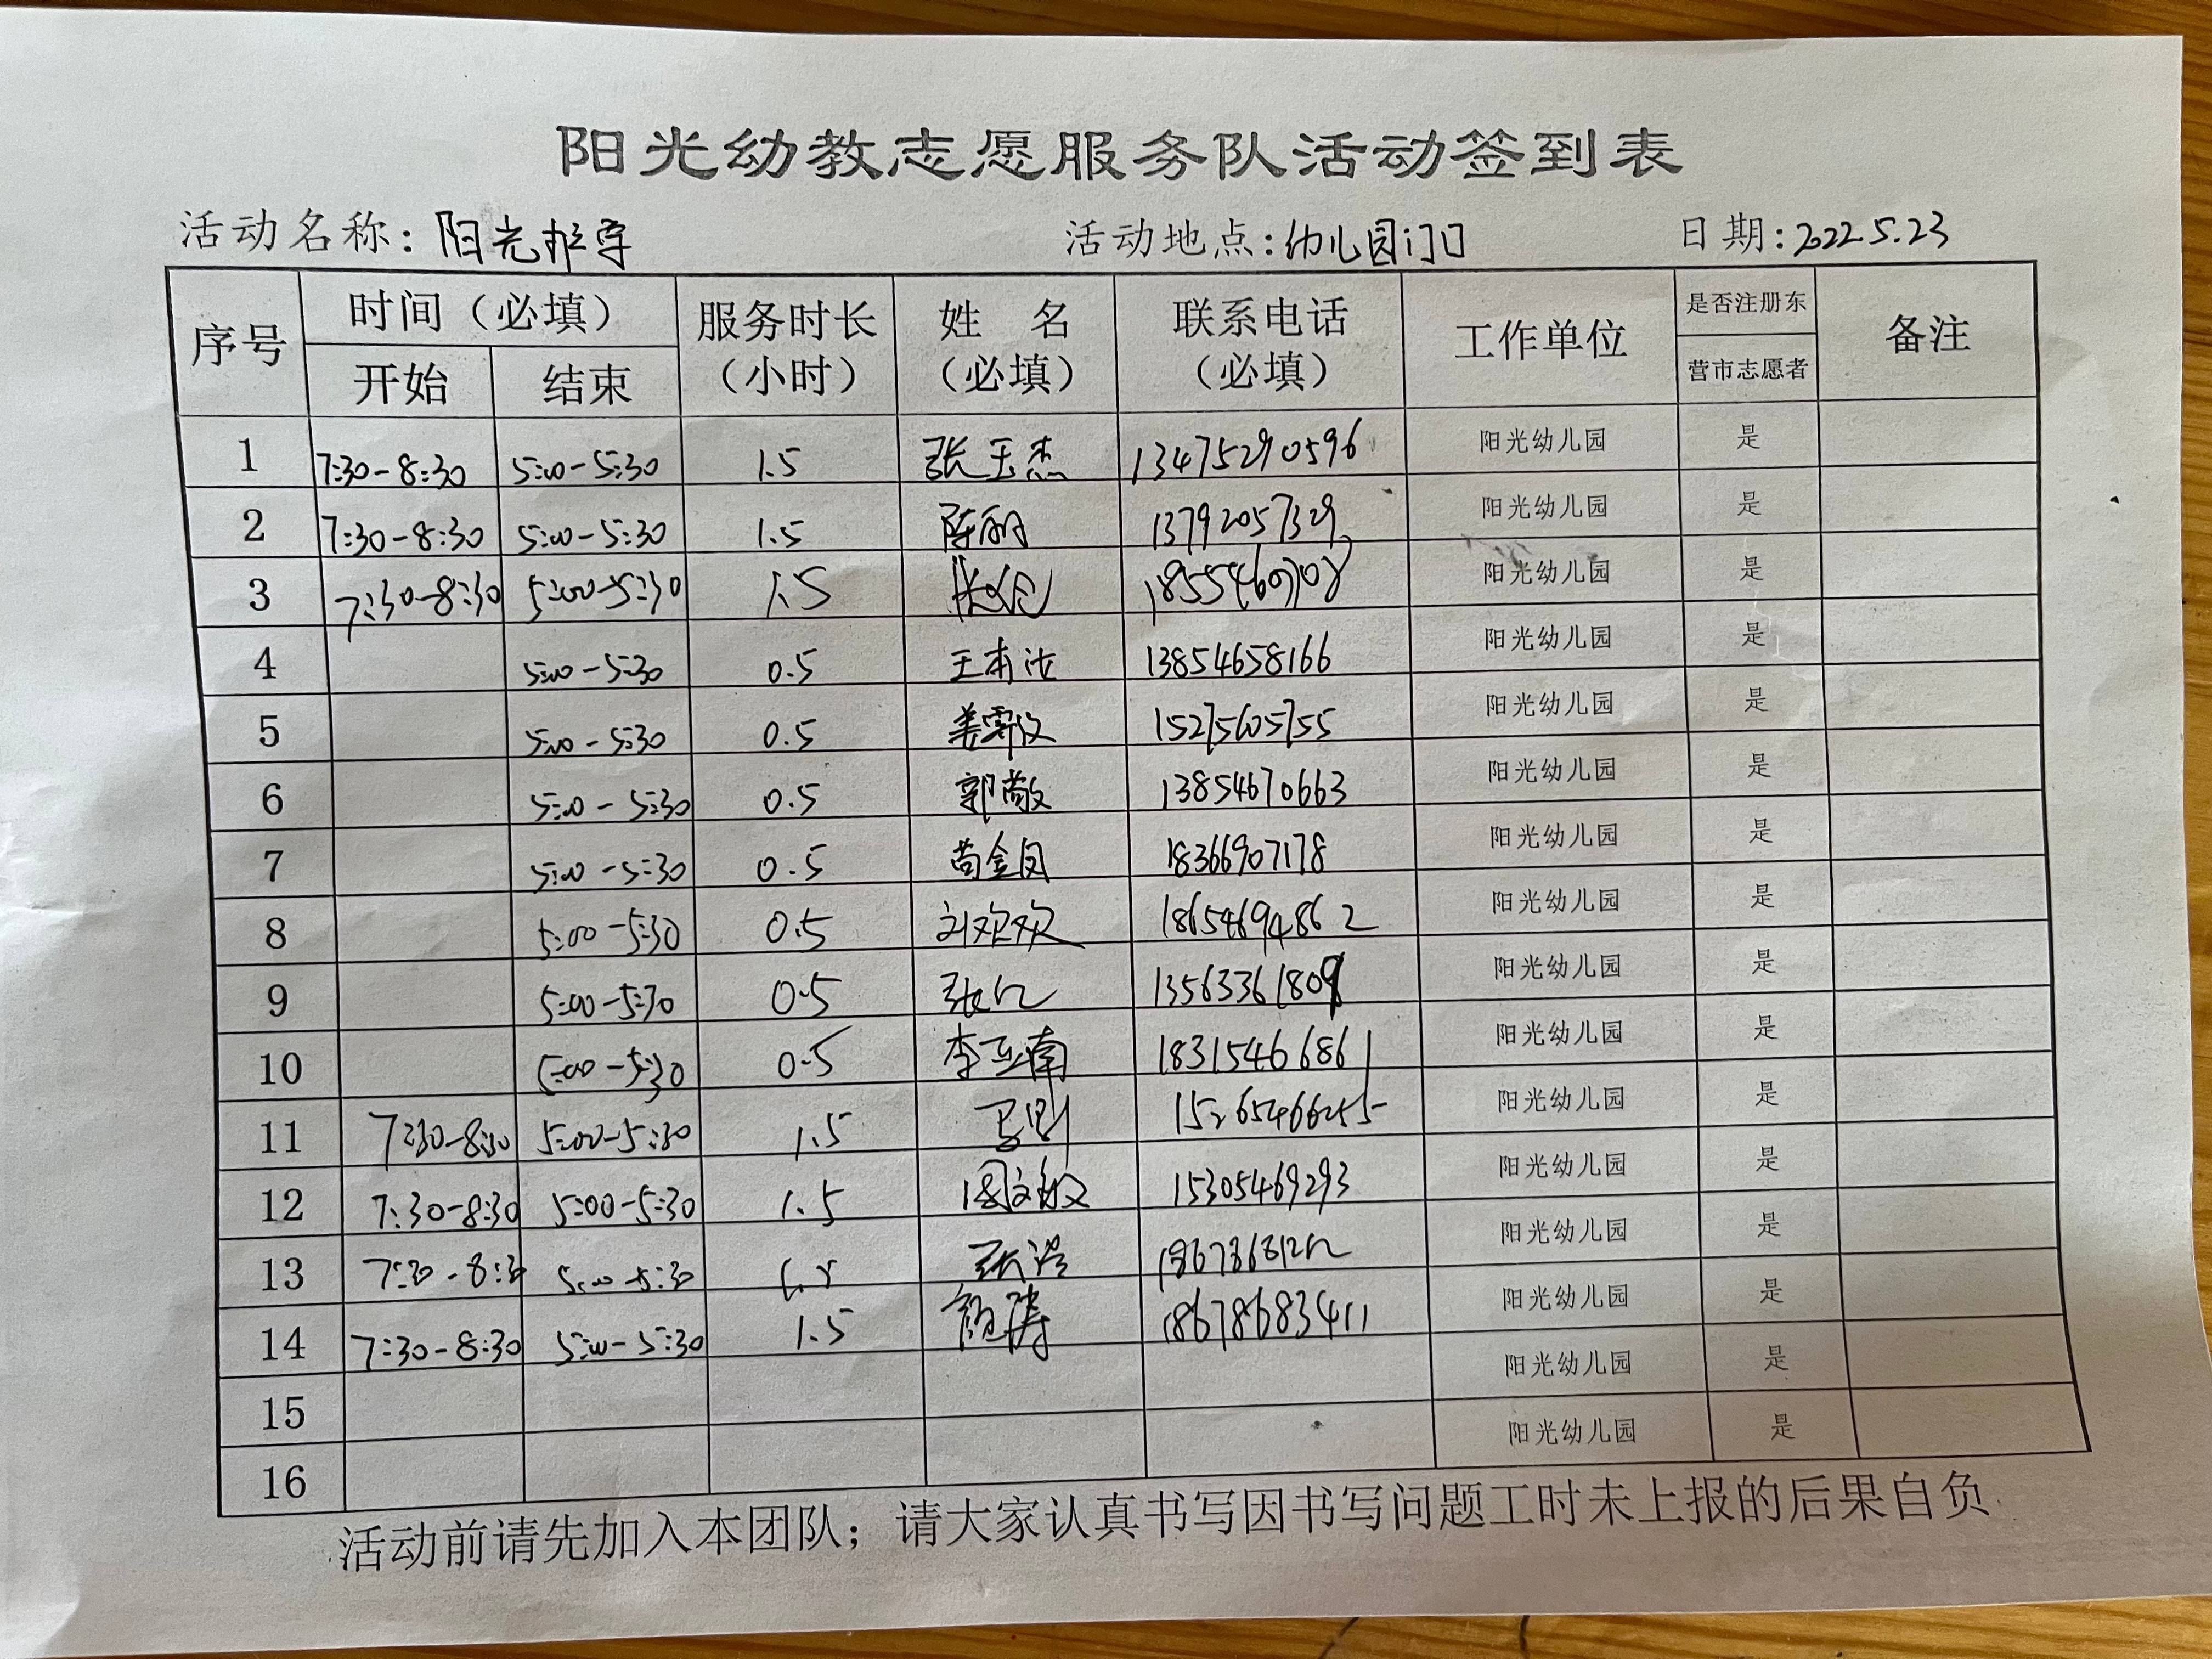 阳光幼教志愿服务队活动签到表
活动名称: 阳光护学 活动地点: 幼儿园门口 日期: 2022.5.23
序号 时间（必填） 服务时长（小时） 姓 名（必填） 联系电话（必填） 工作单位 是否注册东营市志愿者 备注
开始 结束
1 7:30-8:30 5:00-5:30 1.5 张玉杰 13475290596 阳光幼儿园 是
2 7:30-8:30 5:00-5:30 1.5 陈丽 13792057329 阳光幼儿园 是
3 7:30-8:30 5:00-5:30 1.5 阳光幼儿园 是
4 5:00-5:30 0.5 13854658166 阳光幼儿园 是
5 5:00-5:30 0.5 15275605755 阳光幼儿园 是
6 5:00-5:30 0.5 郭敬 13854670663 阳光幼儿园 是
7 5:00-5:30 0.5 苗金凤 18366907178 阳光幼儿园 是
8 5:00-5:30 0.5 刘欢欢 18654694862 阳光幼儿园 是
9 5:00-5:30 0.5 阳光幼儿园 是
10 5:00-5:30 0.5 李亚南 18315466861 阳光幼儿园 是
11 7:30-8:30 5:00-5:30 1.5 阳光幼儿园 是
12 7:30-8:30 5:00-5:30 1.5 周文敏 15305469293 阳光幼儿园 是
13 7:30-8:30 5:00-5:30 1.5 阳光幼儿园 是
14 7:30-8:30 5:00-5:30 1.5 颜涛 18678683411 阳光幼儿园 是
15 阳光幼儿园 是
16 阳光幼儿园 是
活动前请先加入本团队；请大家认真书写因书写问题工时未上报的后果自负